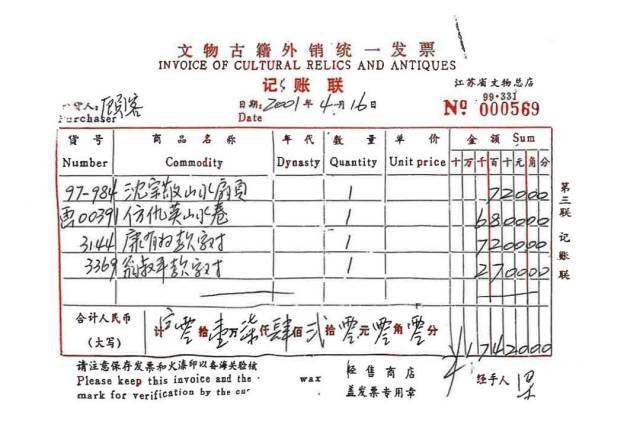 文物古籍外销统一发票
INVOICE OF CULTURAL RELICS AND ANTIQUES
记 账 联
江苏省文物总店
99·331
人: 顾客 日期: 2001 年 4 月 16 日 № 000569
Purchaser Date
货号 商品名称 年代 数量 单价 金额 Sum
Number Commodity Dynasty Quantity Unit price 十万千百十元角分
97-984 沈宗敬山水扇页 1 72000
00391 仿仇英山水卷 1 680000
3144 康有为款字对 1 720000
3369 翁叔平款字对 1 270000
合计人民币 计 零 拾 壹 万 柒 仟 肆 佰 贰 拾 零 元 零 角 零 分 ¥1742000
(大写)
请注意保存发票和火漆印以备海关验核 经售商店 经手人
Please keep this invoice and the wax
mark for verification by the 盖发票专用章
第三联 记账联